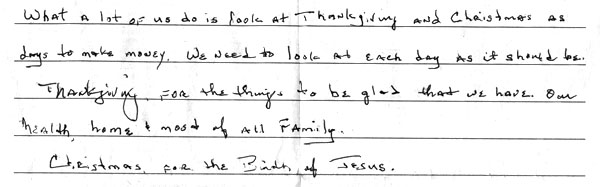 What a lot of us do is look at Thankgiving and Christmas as
days to make money. We need to look at each day as it should be.
Thankgiving, for the things to be glad that we have. Our
health, home & most of all Family.
Christmas, for the Birth of Jesus.